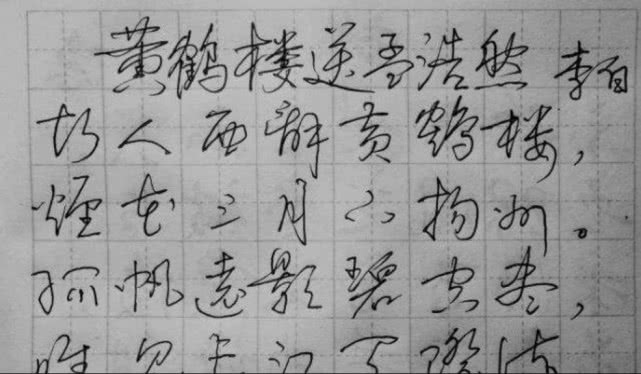 黄鹤楼送孟浩然 李白
故人西辞黄鹤楼，
烟花三月下扬州。
孤帆远影碧空尽，
唯见长江天际流